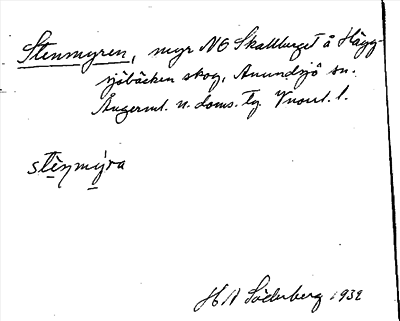 Stenmyren, myr NO Skallberget å Hägg-
sjöbäcken skog, Anundsjö sn.
Ångerml. n. doms. tg. Vnorrl. l.
stẹ̀nmýra
H A Söderberg 1932